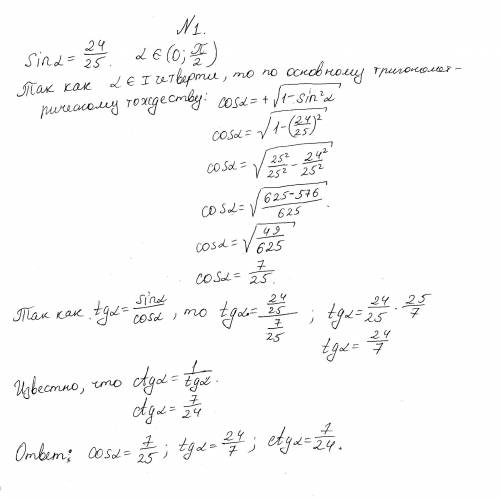 N1.
sinα = 24/25. α ∈ (0; π/2)
Так как α ∈ I четверти, то по основному тригономет-
рическому тождеству: cosα = +√(1 - sin²α)
cosα = √(1 - (24/25)²)
cosα = √(25²/25² - 24²/25²)
cosα = √((625 - 576)/625).
cosα = √(49/625)
cosα = 7/25.
Так как tgα = sinα/cosα, то tgα = (24/25)/(7/25) ; tgα = 24/25 · 25/7
tgα = 24/7
Известно, что ctgα = 1/tgα.
ctgα = 7/24
Ответ: cosα = 7/25 ; tgα = 24/7 ; ctgα = 7/24.